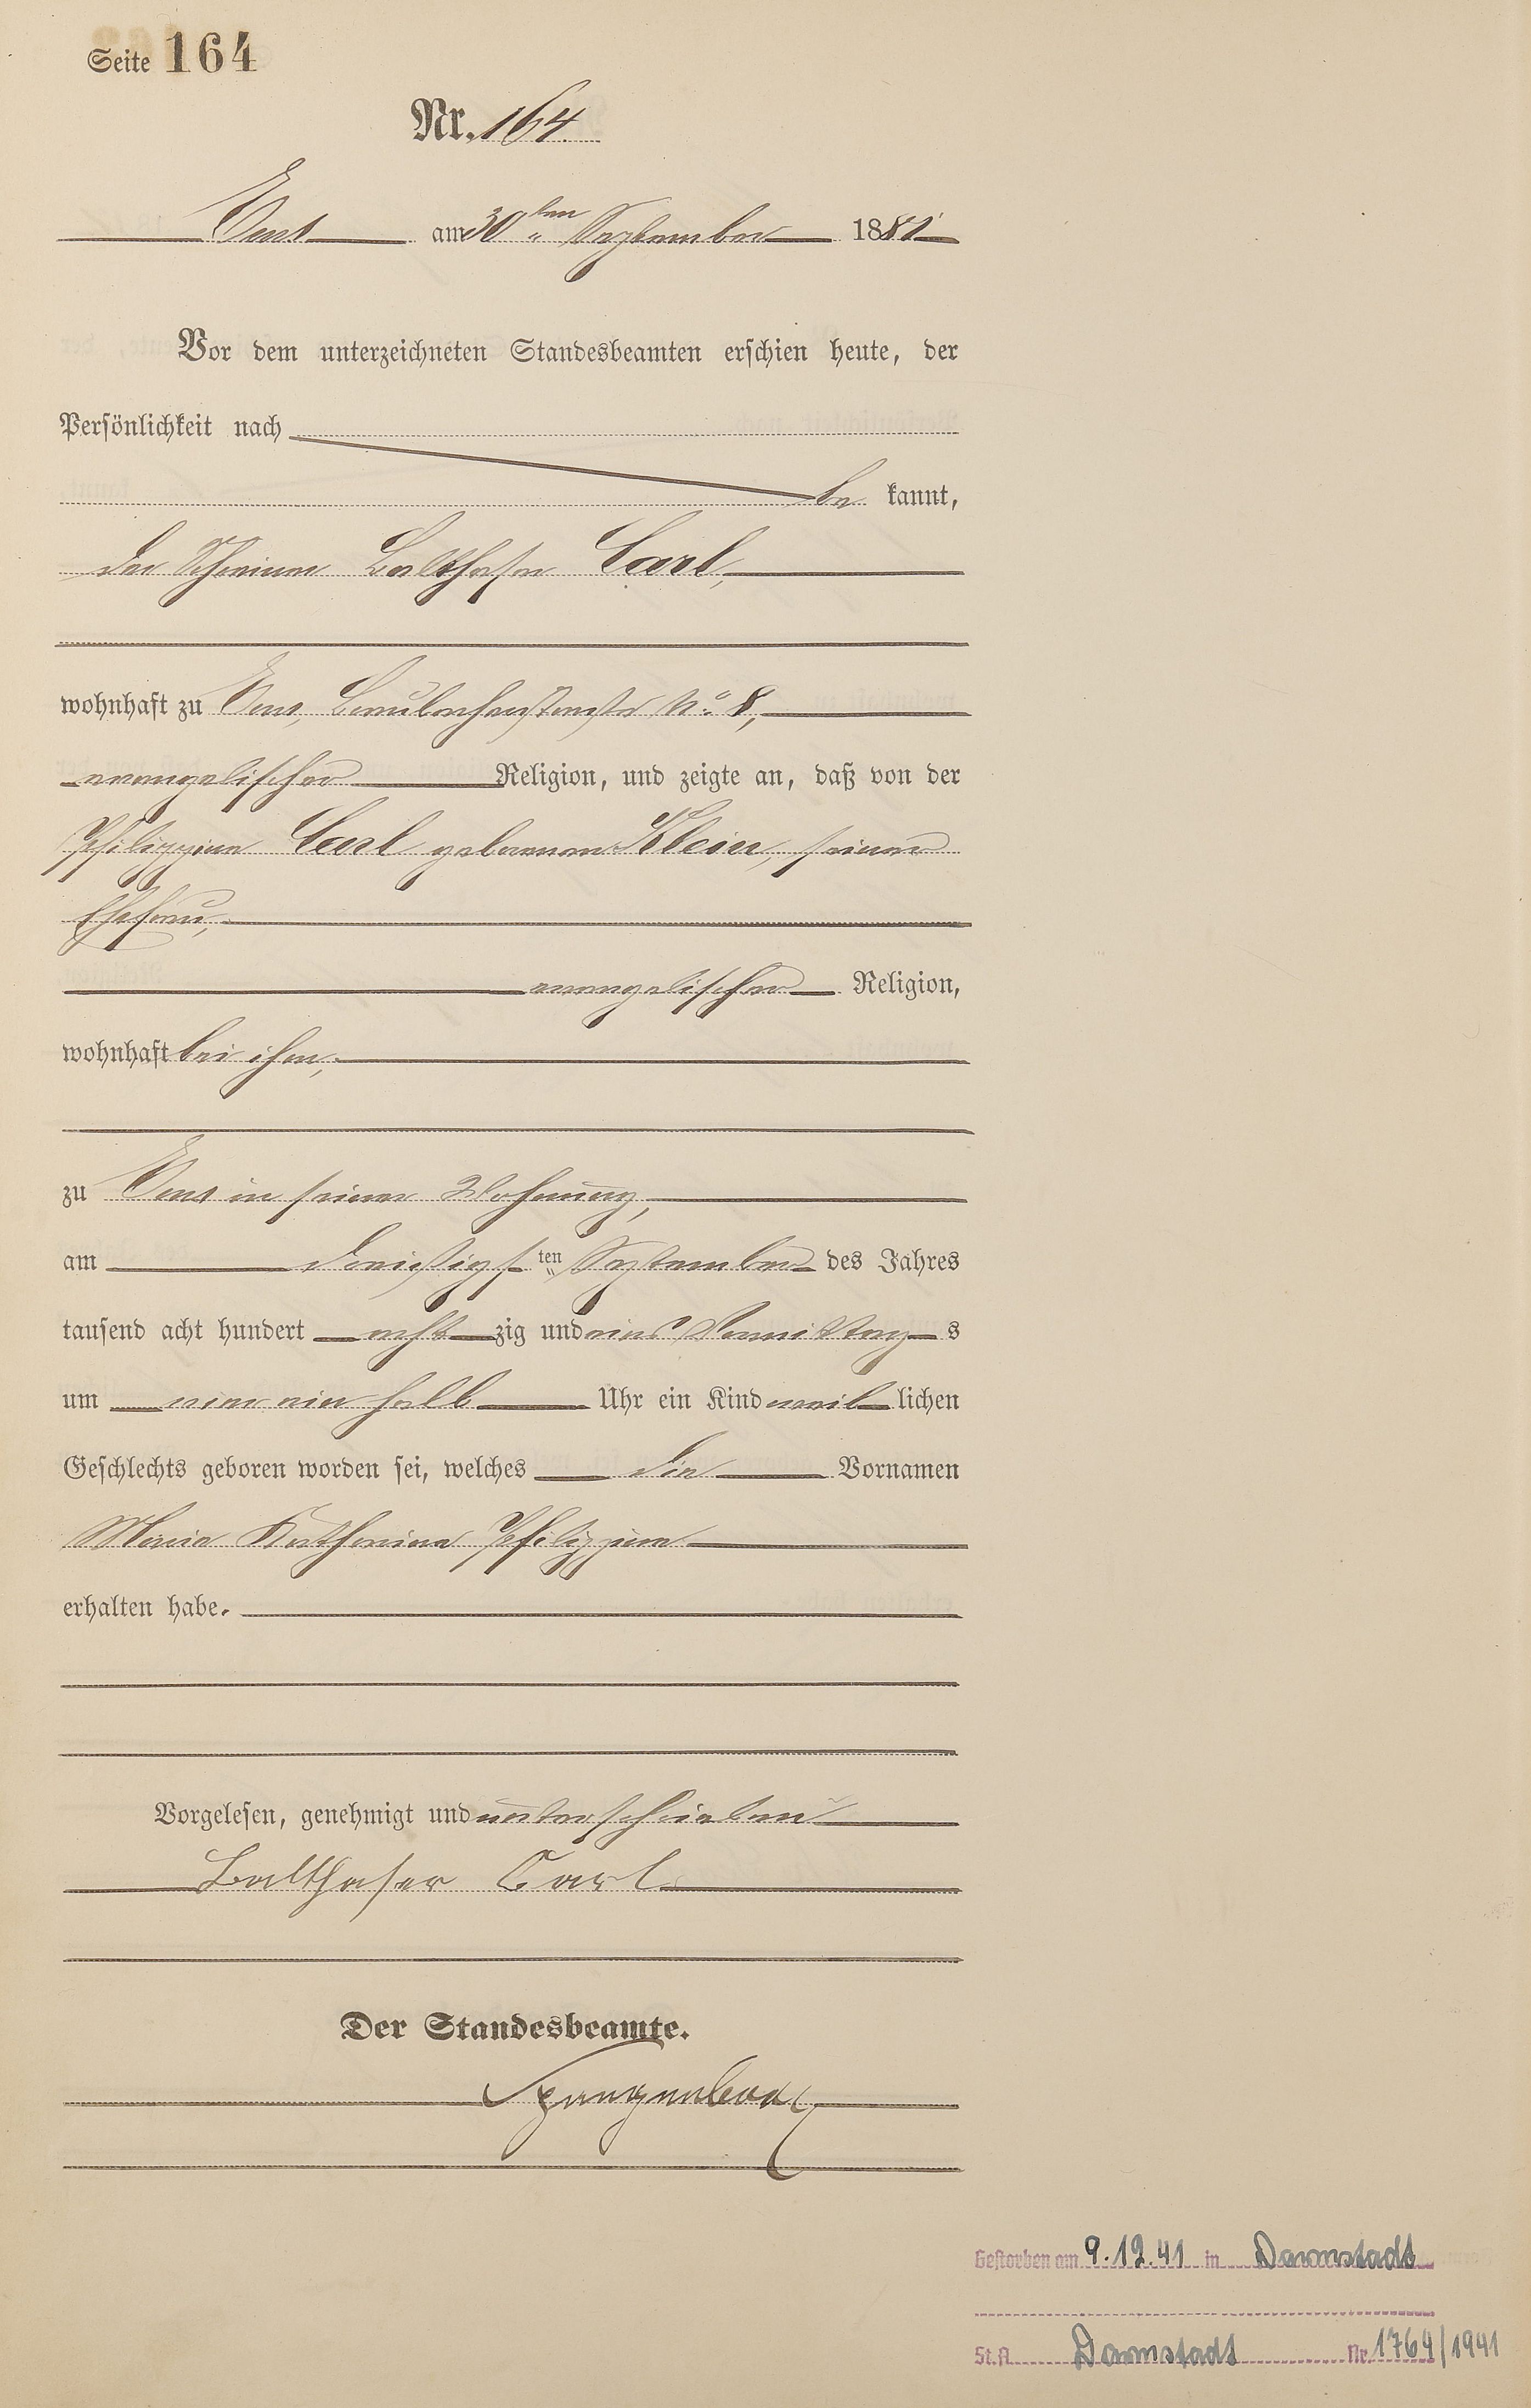 Seite 164
Nr. 164.
Ems am 30ten September 1881
Vor dem unterzeichneten Standesbeamten erschien heute, der
Persönlichkeit nach
be kannt,
der Schreiner Balthasar Carl,
wohnhaft zu Ems, Braubacherstraße No. 8,
evangelischer Religion, und zeigte an, daß von der
Philippine Carl geborenen Klein, seiner
Ehefrau,
evangelischer Religion,
wohnhaft bei ihm,
zu Ems in seiner Wohnung,
am dreißigsten September des Jahres
tausend acht hundert achtzig und eins Vormittags
um neun ein halb Uhr ein Kind weiblichen
Geschlechts geboren worden sei, welches die Vornamen
Maria Katharina Philippine
erhalten habe.
Vorgelesen, genehmigt und unterschrieben
Balthasar Carl
Der Standesbeamte.
Gestorben am 9.12.41 in Darmstadt
St.A. Darmstadt Nr. 1764/1941